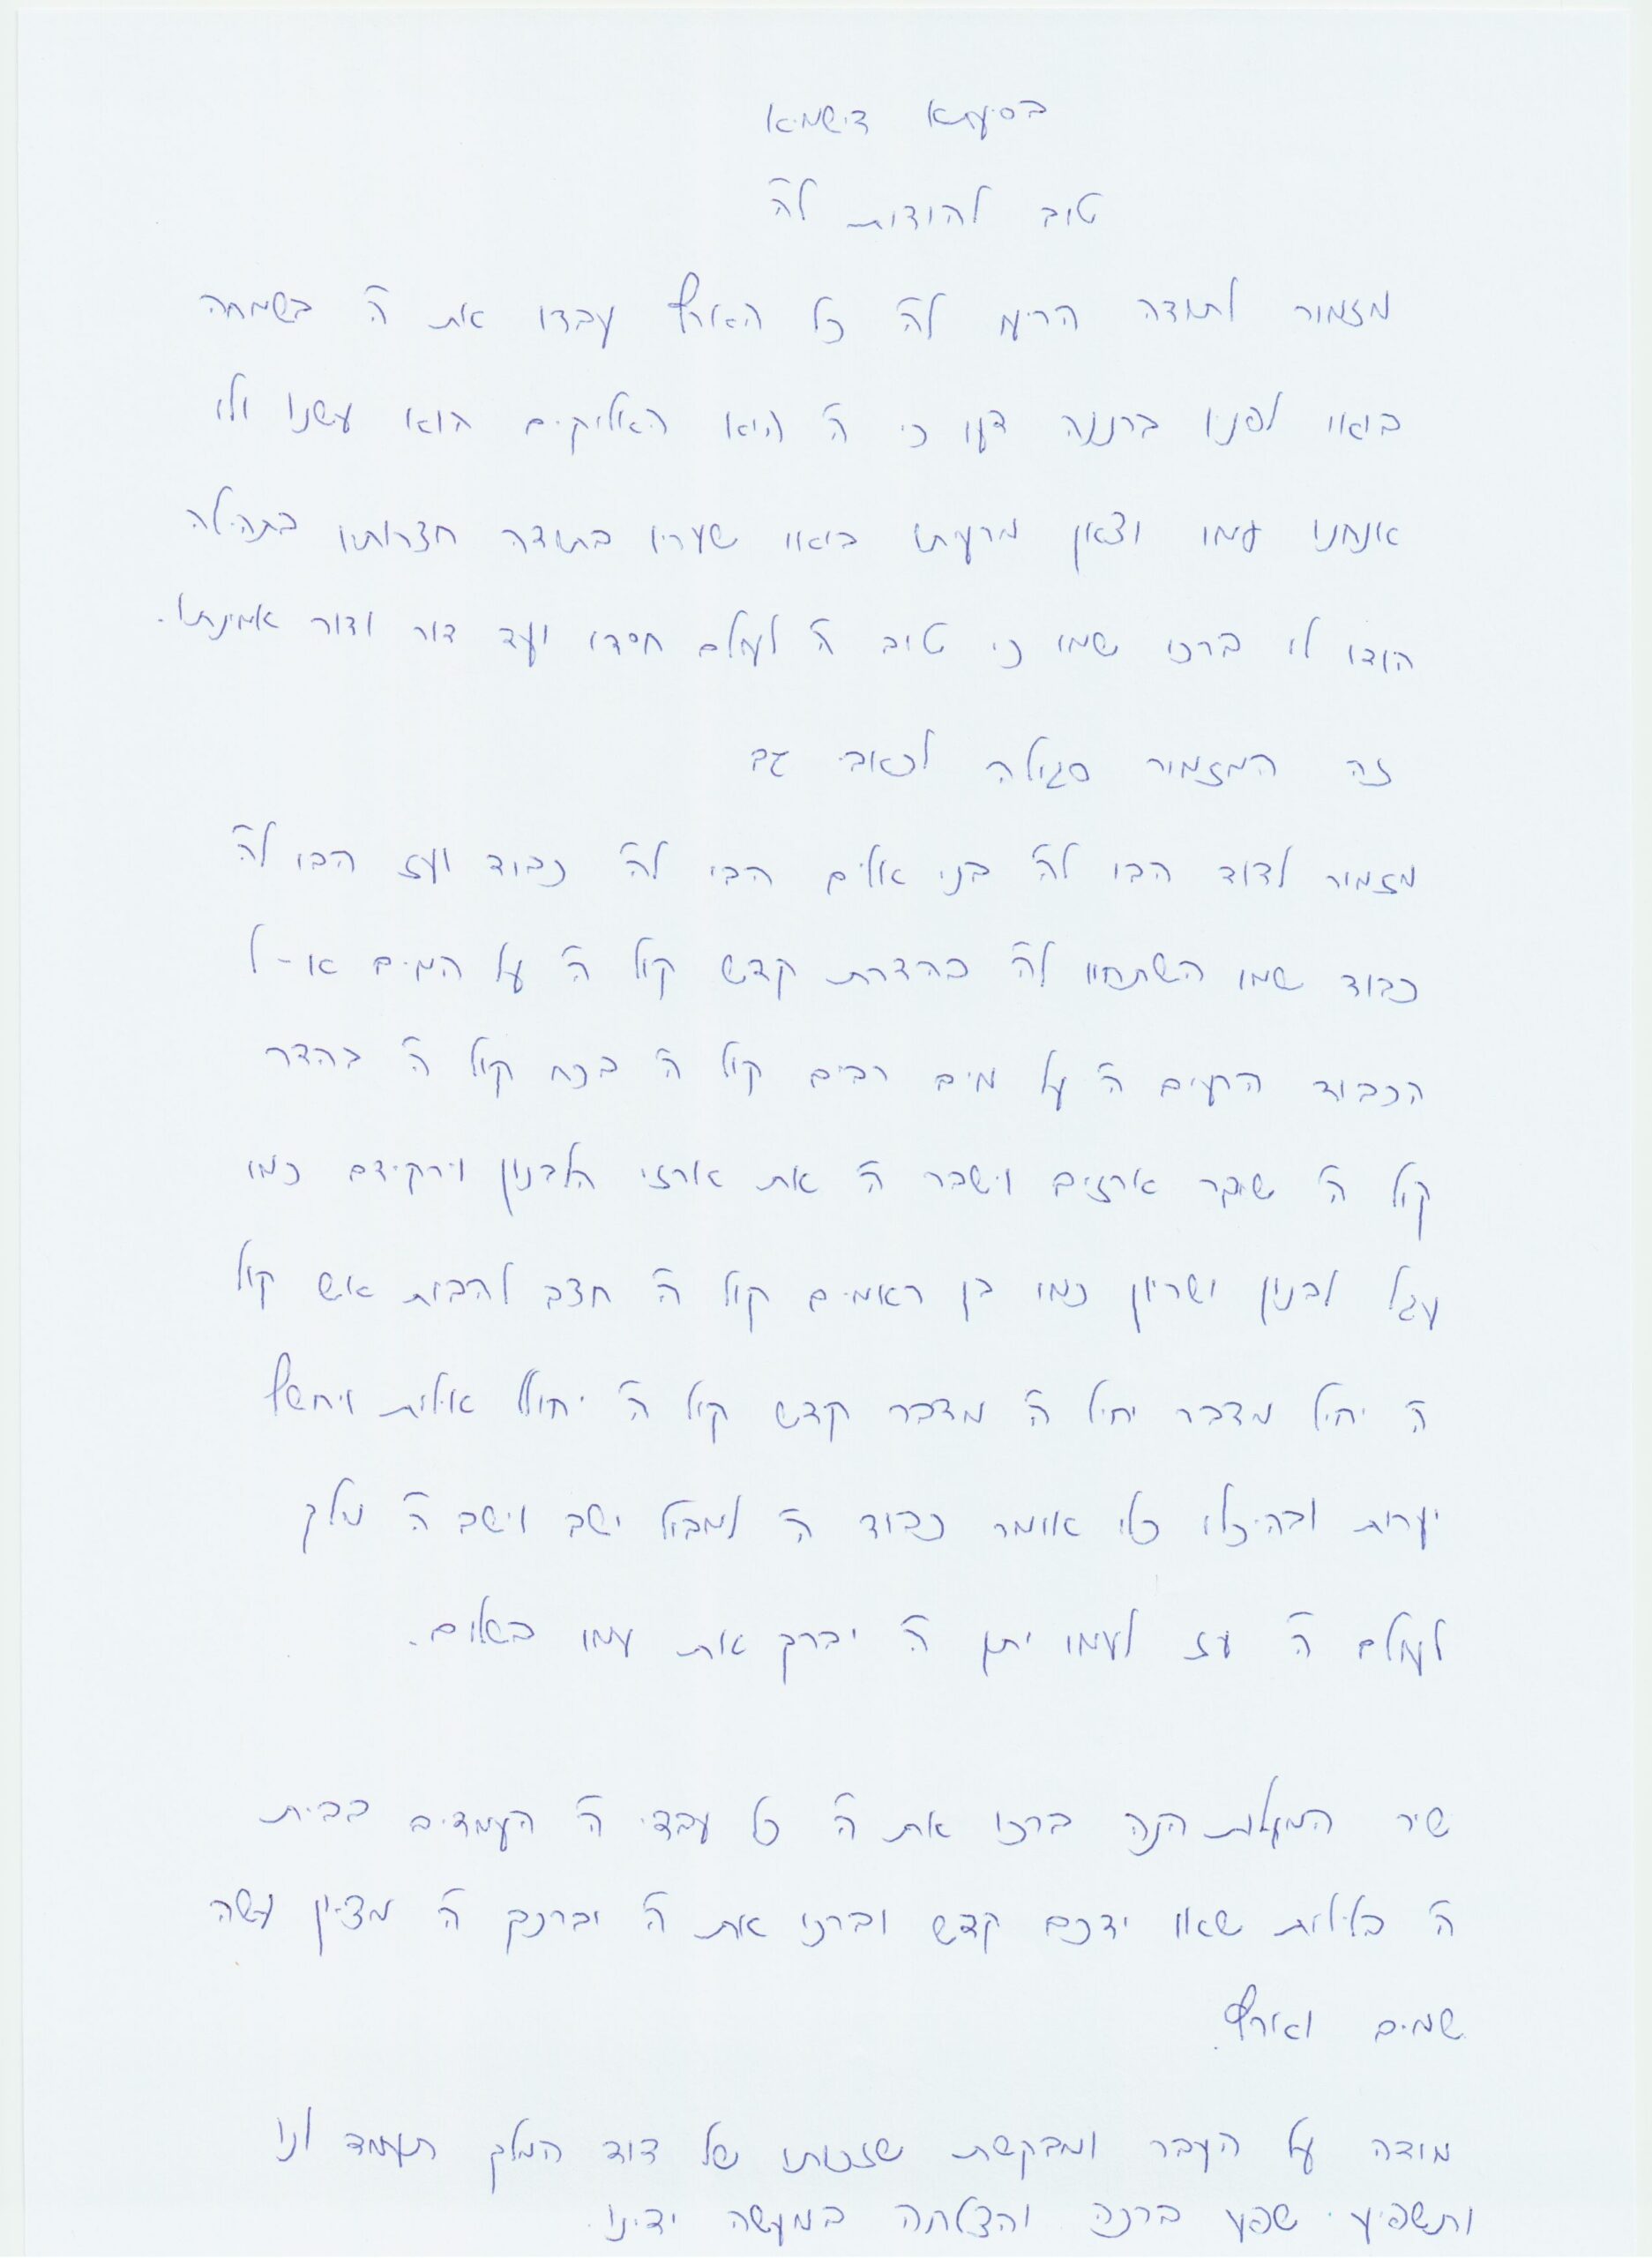 בסיעתא דישמיא
טוב להודות לה'
מזמור לתודה הריעו לה' כל הארץ עבדו את ה' בשמחה
בואו לפניו ברננה דעו כי ה' הוא האליקים הוא עשנו ולו
אנחנו עמו וצאן מרעיתו בואו שעריו בתודה חצרותיו בתהילה
הודו לו ברכו שמו כי טוב ה' לעולם חסדו ועד דור ודור אמונתו.
זה המזמור סגולה לכאבי גב
מזמור לדוד הבו לה' בני אולים הבו לה' כבוד ועז הבו לה'
כבוד שמו השתחוו לה' בהדרת קדש קול ה' על המים א-ל
הכבוד הרעים ה' על מים רבים קול ה' בכח קול ה' בהדר
קול ה' שובר ארזים וישבר ה' את ארזי הלבנון וירקידם כמו
עגל לבנון ושריון כמו בן ראמים קול ה' חצב להבות אש קול
ה' יחיל מדבר יחיל ה' מדבר קדש קול ה' יחולל אילות ויחשף
יערות ובהיכלו כלו אומר כבוד ה' למבול ישב וישב ה' מלך
לעולם ה' עז לעמו יתן ה' יברך את עמו בשלום.
שיר המעלות הנה ברכו את ה' כל עבדי ה' העמדים בבית
ה' בלילות שאו ידכם קדש וברכו את ה' יברכך ה' מציון עשה
שמים וארץ.
מודה על העבר ומבקשת שזכותו של דוד המלך תעמד לנו
ותשפיע שפע ברכה והצלחה במעשה ידינו.